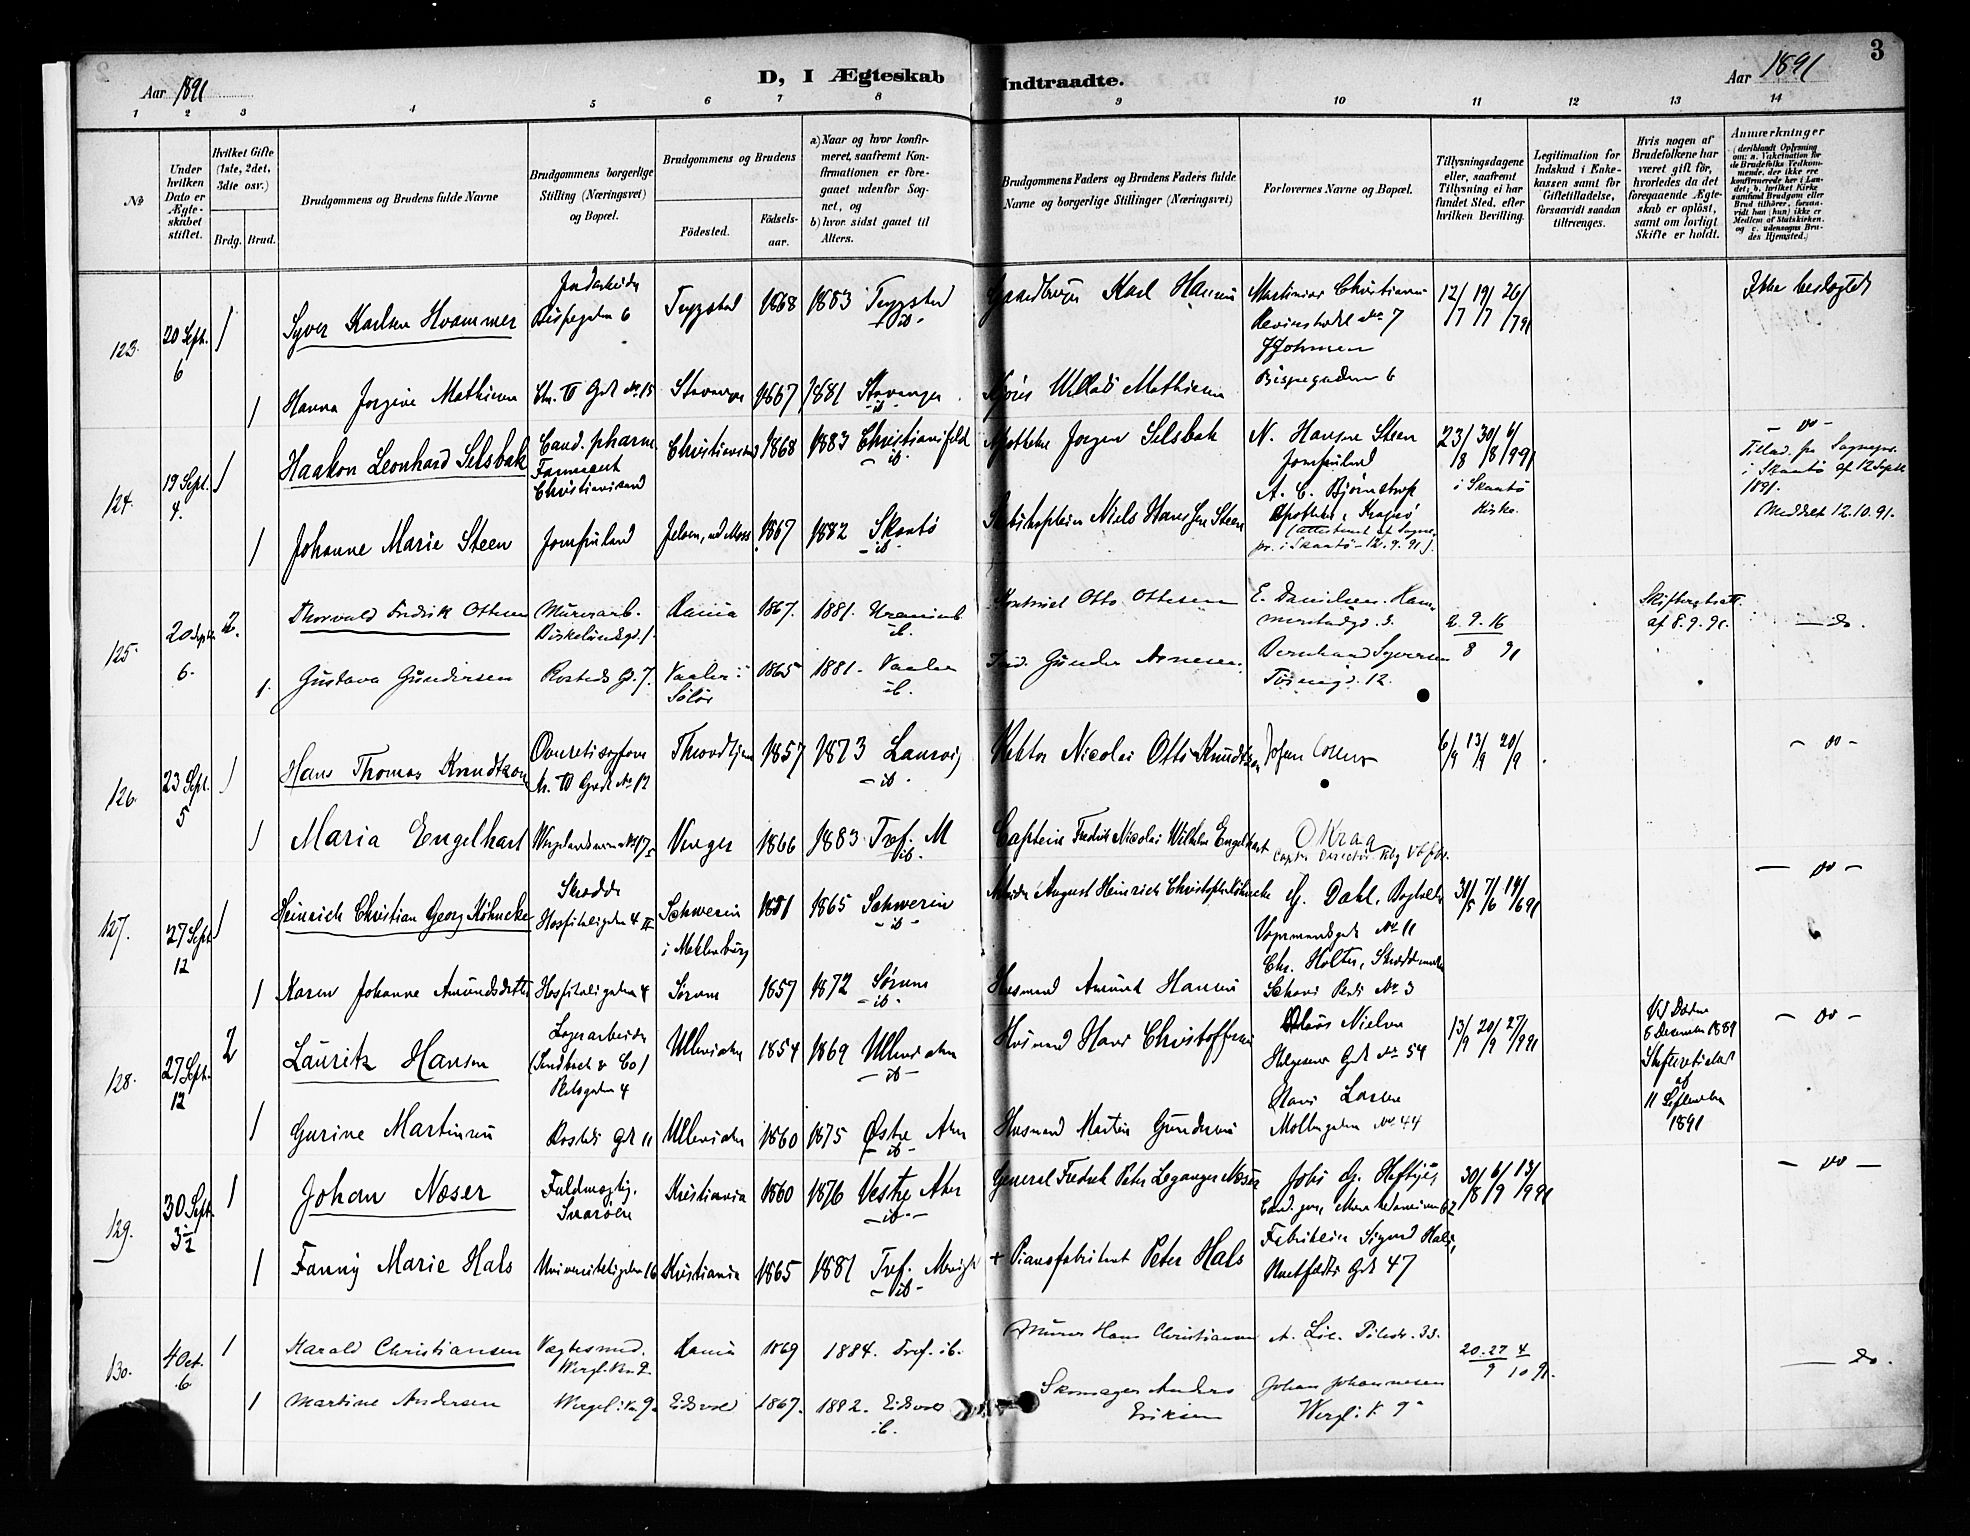 3
Aar 1891
D, I Ægteskab Indtraadte.
Aar 1891
1 2 3 4 5 6 7 8 9 10 11 12 13 14
No
Under hvilken Dato er Ægteskabet stiftet.
Hvilket Gifte (1ste, 2det, 3die osv.)
Brdg. Brud.
Brudgommens og Brudens fulde Navne
Brudgommens borgerlige Stilling (Næringsvei) og Bopæl.
Brudgommens og Brudens
Fødested.
Fødselsaar.
a) Naar og hvor konfirmeret, saafremt Konfirmationen er foregaaet udenfor Sognet, og
b) hvor sidst gaaet til Alters.
Brudgommens Faders og Brudens Faders fulde Navne og borgerlige Stillinger (Næringsvei)
Forlovernes Navne og Bopæl.
Tillysningsdagene eller, saafremt Tillysning ei har fundet Sted, efter hvilken Bevilling.
Legitimation for Indskud i Enkekassen samt for Giftetilladelse, forsaavidt saadan tiltrænges.
Hvis nogen af Brudefolkene har været gift før, hvorledes da det foregaaende Ægteskab er opløst, samt om lovligt Skifte er holdt.
Anmærkninger
(deriblandt Oplysning om: a. Vakcination for de Brudefolks Vedkommende, der ikke ere konfirmerede her i Landet; b. hvilket Kirkesamfund Brudgom eller Brud tilhører, forsaavidt han (hun) ikke er Medlem af Statskirken, og c. udensogns Brudes Hjemsted.)
123. 20 Sept. 6 1 Syver Karlsen Hvammer
Bispegaden 6 Trygstad 1868 1883 Trygstad
- ib -
Gaardbruger Karl Hansen
Martinius Christiansen
No 7
Bispegaden 6
12/7 19/7 26/7 91
Ikke beslægtet
1 Hanna Jorgine Mathisen Chr. IV Gd No 15 Stavanger 1867 1881 Stavanger
- ib -
Mathisen
124. 19 Sept. 4. 1 Haakon Leonhard Selsbak
Cand. pharm.
Christianssand
1868 1883
- ib -
Apotheker Jørgen Selsbak
N. Hansen Steen
Jomfruland
A. C. Bjørnstrup
Apotheker, Kragerø
(Attesteret af Sognepr. i Skaatø 12.9.91).
23/8 30/8 6/9 91
i Skaatø Kirke.
- do -
Tillad. fra Sognepr.
i Skaatø af 12 Septb 1891.
Meddelt 12.10.91.
1 Johanne Marie Steen Jomfruland Jeløen, ved Moss 1867 1882 Skaatø
- ib -
Skibskaptein Niels Hansen Steen
125. 20 Septb. 6. 2. Thorvald Fredrik Ottesen
Murerarb.
Birkelundsgd. 1.
Kania 1867. 1881. Uranienb
ib.
Otto Ottesen
E. Danielsen. Hammerstadgd. 3.
2. 9. 16
8 91
Skifterettsatt.
af 8.9.91.
- do.
1. Gustava Gundersen Rosteds G. 7. Vaaler i Solør 1865 1881. Vaaler
ib.
Gunder Arnesen.
Bernhard Syversen
12.
126. 23 Sept. 5 1 Hans Thomas Knudtzon
Overretssagfører
Chr. IV Gade No 12
Throndhjem 1857 1873 Laurvig
- ib -
Rektor Nicolai Otto Knudtzon
Johan Collett
6/9 13/9 20/9
- do -
1 Maria Engelhart Verger 1866 1883 Tref. M
ib.
Captein Fredrik Nicolai Wilhelm Engelhart
O Krag
127. 27 Sept. 12 1 Heinrich Christian Georg Köhncke
Skrædder
Hospitalsgaden 4 II
Schwerin i Meklenburg 1851 1865 Schwerin
- ib -
Arbeider August Heinrich Christopher Köhncke
G. Dahl, Bogholder
No 11
Chr. Holter, Skræddermester
No 3
31/5 7/6 14/6 91
- do -
1 Karen Johanne Amundsdatter Hospitalsgaden 4 Sørum 1857 1872 Sørum
- ib -
Husmand Amund Hansen
128. 27 Sept. 12 2 Lauritz Hansen
Lagerarbeider
4
Ullensaker 1854 1869 Ullensaker
- ib -
Husmand Hans Christoffersen
Nielsen
Helgesens Gd No 54
Hans Larsen
Møllergaden No 44
13/9 20/9 27/9 91
Ved Døden
6 December 1889
Skifteretsattest
af
11 September
1891
- do -
1 Gurine Martinsen Rosteds Gd 11 Ullensaker 1860 1875 Østre Aker
- ib -
Husmand Martin Gundersen
129. 30 Sept. 3½ 1 Johan Næser
Fuldmægtig.
Snarøen
Kristiania 1860 1876 Vestre Aker
- ib -
General Fredrik Peter Leganger Næser
Johs G. Heftye
Cand. jur.
30/8 6/9 13/9 91
- do -
1 Fanny Marie Hals Universitetsgaden 16 Kristiania 1865 1881 Tref. Menigh
- ib -
+ Pianofabrikant Peter Hals
Fabrikeier Sigurd Hals,
47
130. 4 Oct. 6. 1 Harald Christiansen
Vægtersmed.
Wergl. Vn 9.
Kania 1869 1884. Tref. ib.
Murer Hans Christiansen
A. Lie. Pilestr. 33.
20. 27 4
9 10 91.
- do.
1 Martine Andersen Wergl. Vn 9. Eidsvold 1867. 1882. Eidsvold
ib.
Skomager Anders Eriksen
Johan Johannesen
Wergl. V. 9